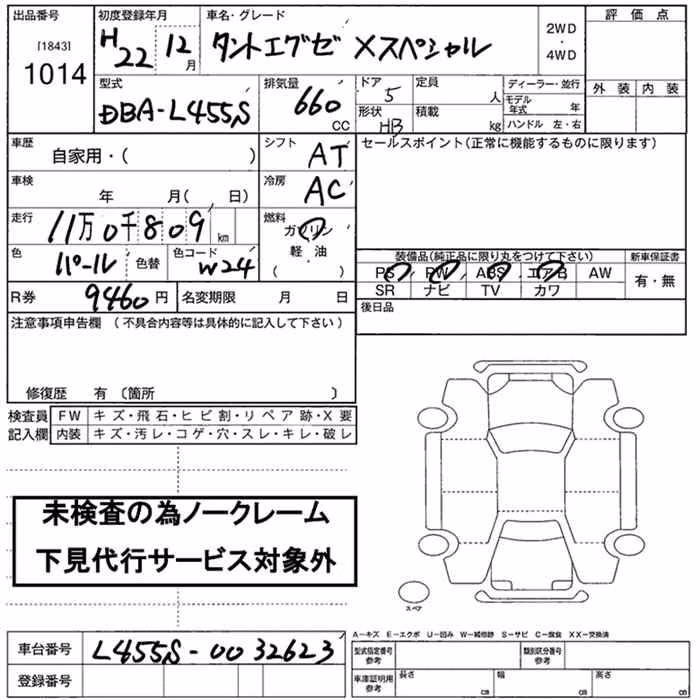 出品番号
[1843]
1014
初度登録年月
H22 12月
車名・グレード
タントエグゼ Xスペシャル
2WD
・
4WD
評価点
外装 内装
型式
DBA-L455S
排気量
660
CC
ドア
5
形状
HB
定員
人
積載
kg
ディーラー・並行
モデル年式 年
ハンドル 左・右
車歴
自家用・( )
シフト
AT
車検
年 月( 日)
冷房
AC
走行
11万0千809 km
燃料
ガソリン
軽・油
( )
色
パール
色替
色コード
W24
R券
9460円
名変期限 月 日
セールスポイント(正常に機能するものに限ります)
装備品(純正品に限り丸をつけて下さい)
PS PW ABS エアB AW
SR ナビ TV カワ
新車保証書
有・無
後日品
注意事項申告欄 (不具合内容等は具体的に記入して下さい)
修復歴 有 〔箇所 〕
検査員
記入欄
FW キズ・飛石・ヒビ割・リペア跡・X要
内装 キズ・汚レ・コゲ・穴・スレ・キレ・破レ
未検査の為ノークレーム
下見代行サービス対象外
スペア
A−キズ E−エクボ U−凹み W−補修跡 S−サビ C−腐食 XX−交換済
車台番号
L455S-0032623
登録番号
型式指定番号
参考
類別区分番号
参考
車庫証明用
参考
長さ cm
幅 cm
高さ cm